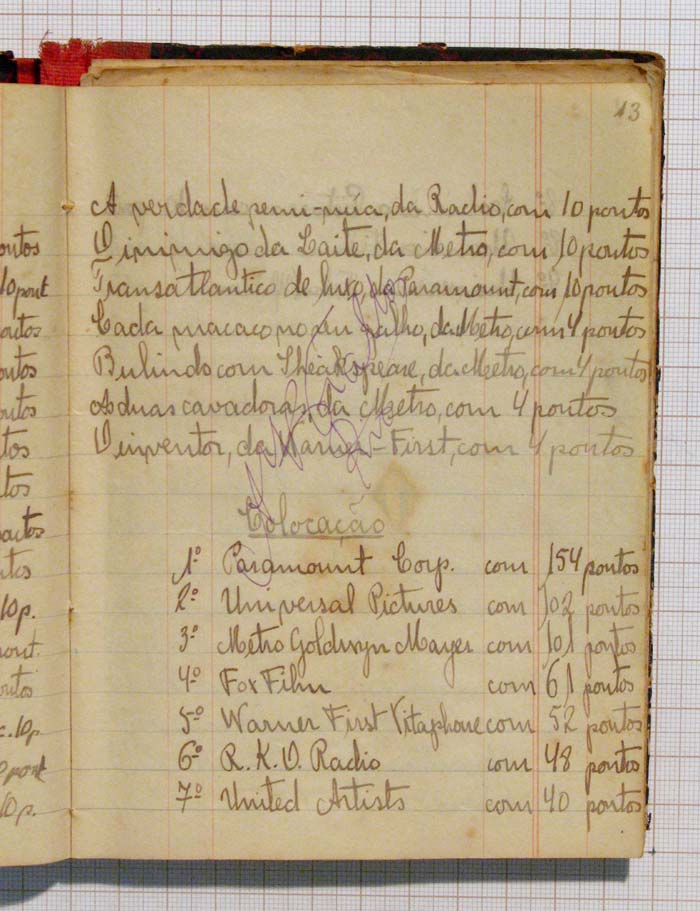 13
A verdade semi-núa, da Radio, com 10 pontos
O inimigo da Laite, da Metro, com 10 pontos
Transatlantico de luxo da Paramount, com 10 pontos
Cada macaco no seu galho, da Metro, com 4 pontos
Bulindo com Sheakspeare, da Metro, com 4 pontos
As duas cavadoras, da Metro, com 4 pontos
O inventor, da Warner-First, com 4 pontos
Colocação
1º Paramount Corp. com 154 pontos
2º Universal Pictures com 102 pontos
3º Metro Goldwyn Mayer com 101 pontos
4º Fox Film com 61 pontos
5º Warner First Vitaphone com 52 pontos
6º R.K.O. Radio com 48 pontos
7º United Artists com 40 pontos